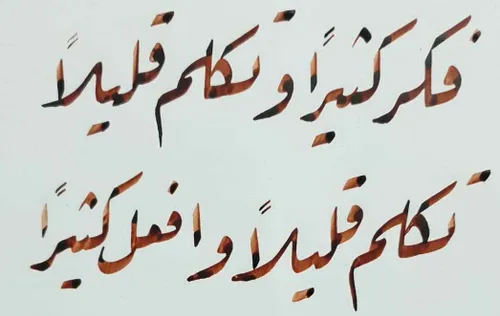 فكر كثيرًا و تكلم قليلاً
تكلم قليلاً و افعل كثيرًا